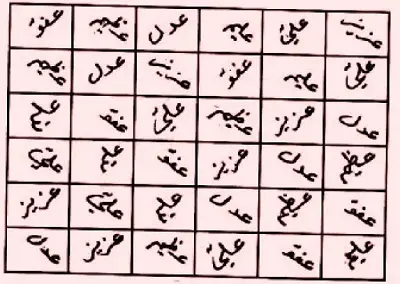 عزيز علي عليم عدل عظيم عفو
علي عليم عفو عزيز عدل عظيم
عدل عزيز عظيم علي عفو عليم
عظيم عدل عزيز عفو عليم علي
عفو عظيم عدل عليم علي عزيز
عليم عفو علي عظيم عزيز عدل